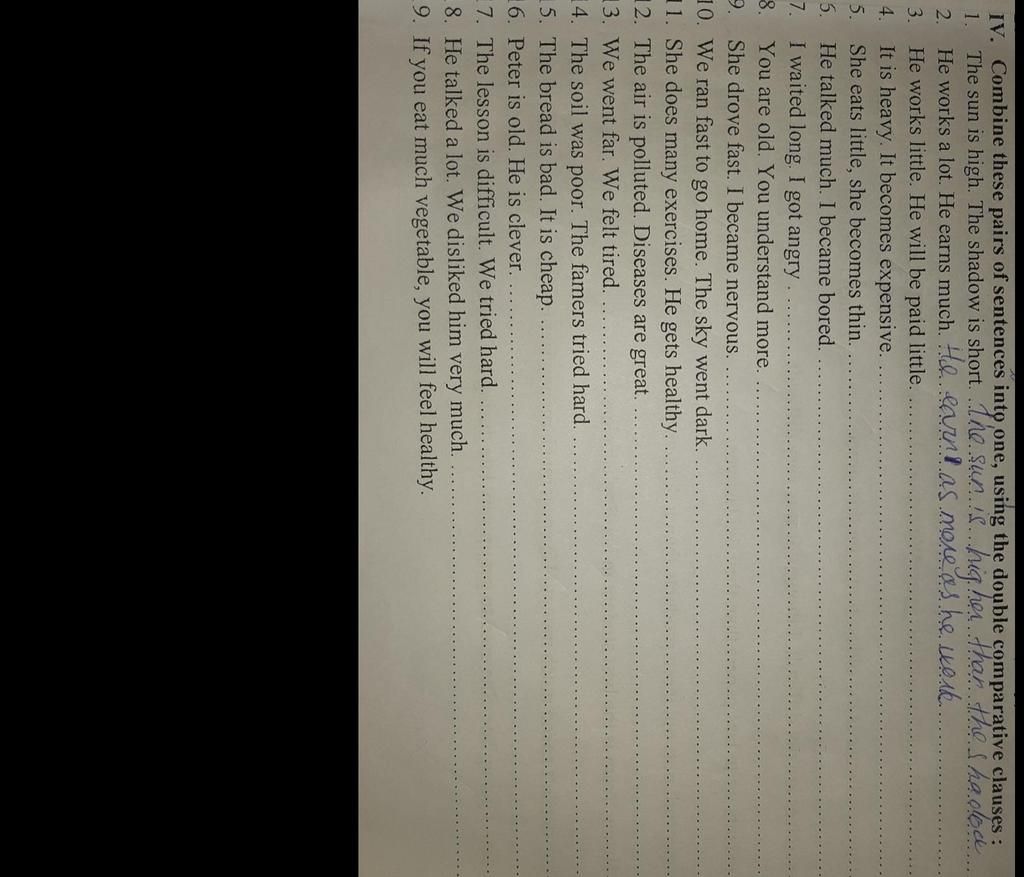 IV. Combine these pairs of sentences into one, using the double comparative clauses :
1. The sun is high. The shadow is short. The sun is higher than the shadow
2. He works a lot. He earns much. He earn as more as he work
3. He works little. He will be paid little.
4. It is heavy. It becomes expensive.
5. She eats little, she becomes thin.
6. He talked much. I became bored.
7. I waited long. I got angry
8. You are old. You understand more.
9. She drove fast. I became nervous.
10. We ran fast to go home. The sky went dark.
11. She does many exercises. He gets healthy.
12. The air is polluted. Diseases are great
13. We went far. We felt tired.
14. The soil was poor. The famers tried hard
15. The bread is bad. It is cheap.
16. Peter is old. He is clever.
17. The lesson is difficult. We tried hard.
18. He talked a lot. We disliked him very much.
19. If you eat much vegetable, you will feel healthy.